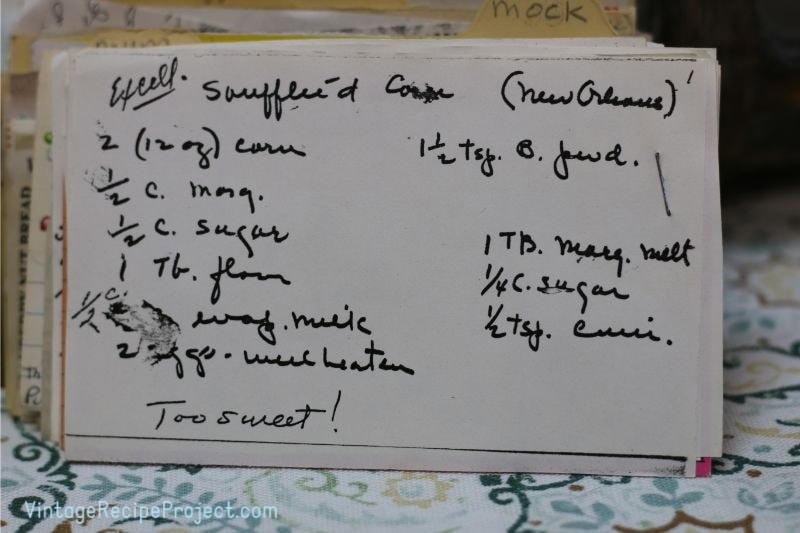 mock
Excell. Souffle'd Corn (New Orleans)
2 (12 oz) corn
1/2 C. marg.
1/2 C. sugar
1 Tb. flour
1/2 C. evap. milk
2 eggs - well beaten
Too sweet!
1 1/2 tsp. B. powd.
1 TB. marg. melt
1/4 C. sugar
1/2 tsp. cinn.
VintageRecipeProject.com